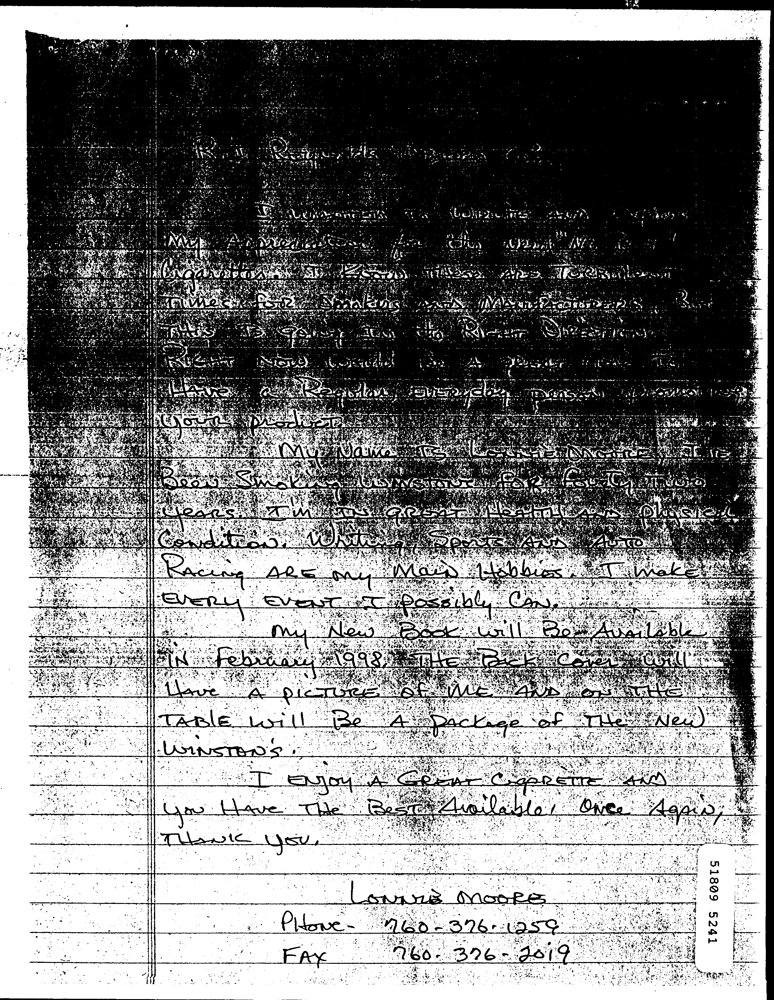 R.J. Reynolds Tobacco Co.
I wanted to write and
My Appreciation for the New "No
Cigarettes. I Know These are Turbulent
Times for Smokers and Manufacturers, But
This is going in the Right Direction.
Right Now would be a great time to
Have a Regular Everyday person promoting
your product.
My Name Is Lonnie Moore. I've
Been Smoking Winstons for forty two
years. I'm in great Health and physical
Condition. Writing, Sports AND Auto
Racing ARE my Main Hobbies. I make
EVERY EVENT I possibly CAN.
My New Book will Be Available
IN February 1998. THE Back Cover will
Have A picTURE of ME AND on THE
TABLE will Be A package of THE New
WINSTON'S.
I ENJOY A GREAT CIGARETTE AND
you HAVE THE BEST Available. ONCE AgAiN,
THANK YOU.
LONNIE MOORE
PHONE- 760-376-1259
FAX 760-376-2019
51809 5241